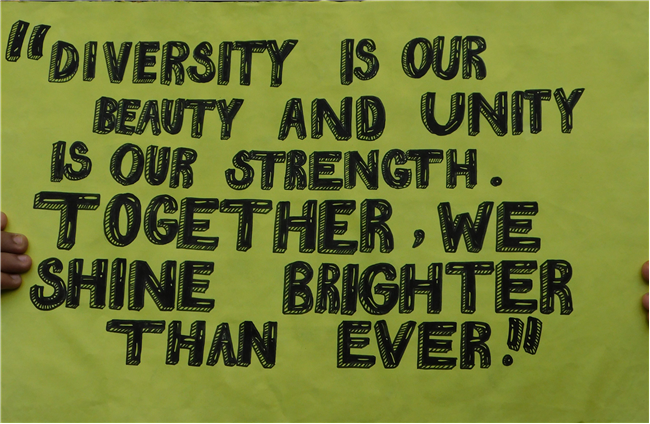 "DIVERSITY IS OUR
BEAUTY AND UNITY
IS OUR STRENGTH.
TOGETHER, WE
SHINE BRIGHTER
THAN EVER!"